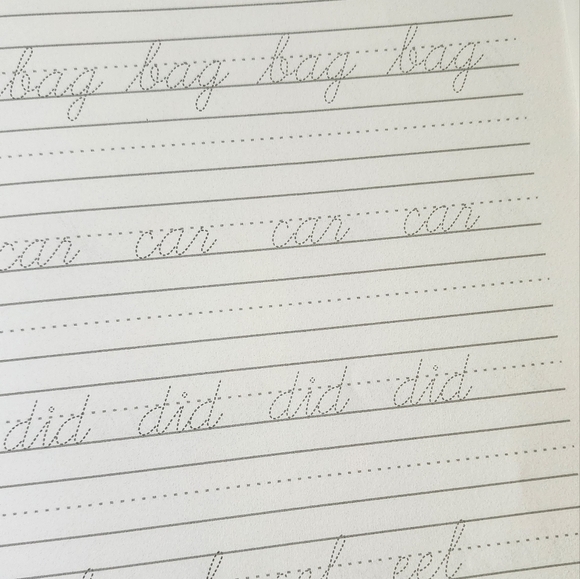 bag bag bag bag
car car car car
did did did did
eel